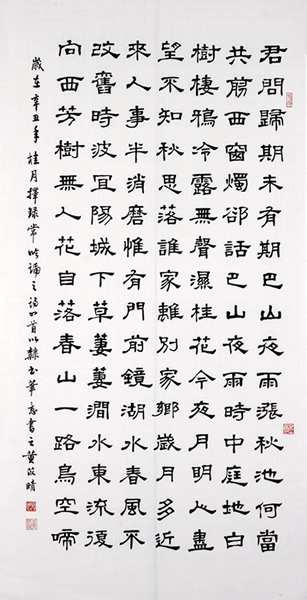 君問歸期未有期巴山夜雨漲秋池何當
共剪西窗燭卻話巴山夜雨時中庭地白
樹棲鴉冷露無聲濕桂花今夜月明人盡
望不知秋思落誰家離別家鄉歲月多近
來人事半消磨惟有門前鏡湖水春風不
改舊時波宜陽城下草萋萋澗水東流復
向西芳樹無人花自落春山一路鳥空啼
歲在辛丑年桂月擇錄常吟誦之詩四首以隸書筆意書之黃